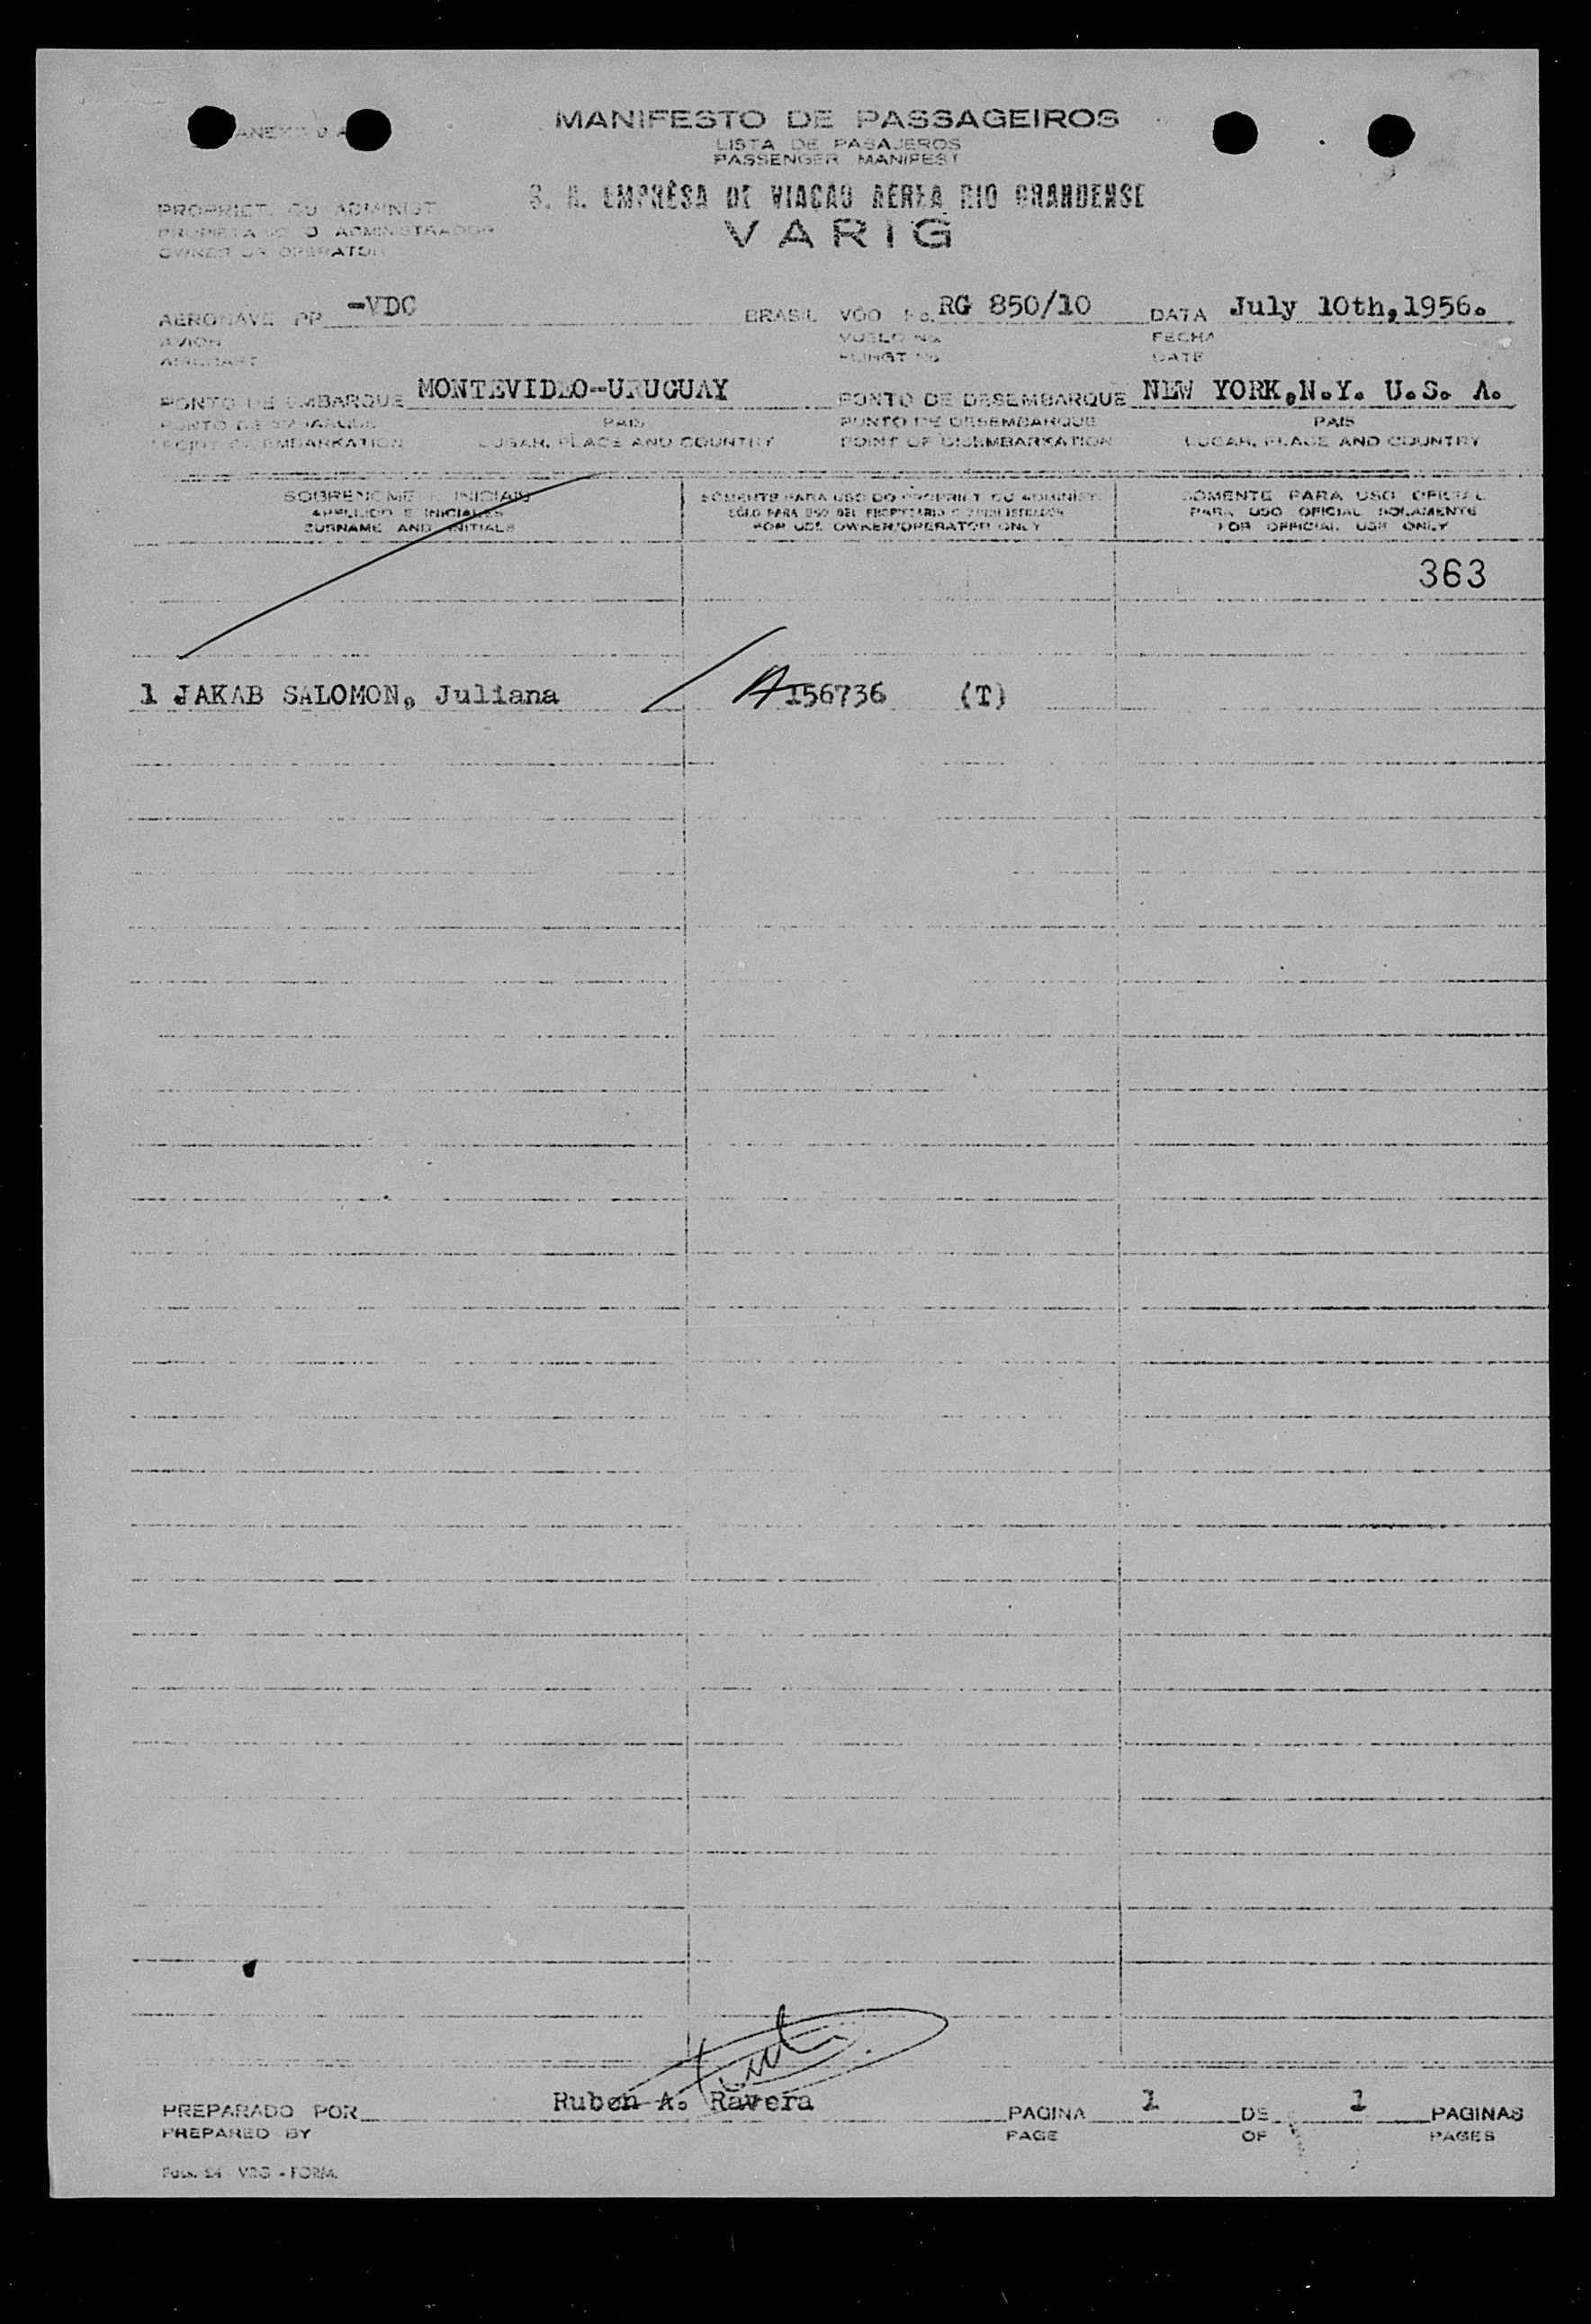 ANEXO 9 A
MANIFESTO DE PASSAGEIROS
LISTA DE PASAJEROS
PASSENGER MANIFEST
S. A. EMPRÊSA DE VIAÇAO AÉREA RIO GRANDENSE
VARIG
PROPRIET. OU ADMINIST.
PROPIETARIO O ADMINISTRADOR
OWNER OR OPERATOR
AERONAVE PP -VDC BRASIL VÔO No. RG 850/10 DATA July 10th,1956.
AVION VUELO No. FECHA
AIRCRAFT FLINGT No DATE
PONTO DE EMBARQUE MONTEVIDEO-URUGUAY PONTO DE DESEMBARQUE NEW YORK,N.Y. U.S. A.
PUNTO DE EMBARQUE PAIS PUNTO DE DESEMBARQUE PAIS
POINT OF EMBARKATION LUGAR, PLACE AND COUNTRY POINT OF DISEMBARKATION LUGAR, PLACE AND COUNTRY
SOBRENOME E INICIAIS SOMENTE PARA USO DO PROPRIET. OU ADMINIST. SOMENTE PARA USO OFICIAL
APELLIDO E INICIALES SÓLO PARA USO DEL PROPIETARIO O ADMINISTRADOR PARA USO OFICIAL SOLAMENTE
SURNAME AND INITIALS FOR USE OWNER/OPERATOR ONLY FOR OFFICIAL USE ONLY
363
1 JAKAB SALOMON, Juliana A156736 (T)
PREPARADO POR Ruben A. Ravera PAGINA 1 DE 1 PAGINAS
PREPARED BY PAGE OF PAGES
VRG - FORM.